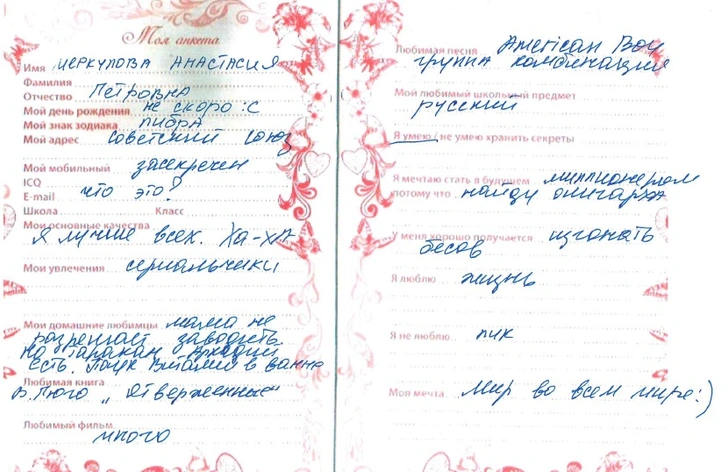 Моя анкета
Имя МЕРКУЛОВА АНАСТАСИЯ
Фамилия
Отчество ПЕТРОВНА
Мой день рождения не скоро :с
Мой знак зодиака либра
Мой адрес Советский Союз
Мой мобильный засекречен
ICQ
E-mail что это?
Школа Класс
Мои основные качества
Я лучше всех. Ха-ха
Мои увлечения сериальчики
Мои домашние любимцы мама не
разрешает заводить
Но таракан Аркадий
есть. Паук Виталий в ванне
Любимая книга
В. Гюго „Отверженные“
Любимый фильм
много
Любимая песня American Boy
группа комбинация
Мой любимый школьный предмет
русский
Я умею / не умею хранить секреты
Я мечтаю стать в будущем миллионером
потому что найду олигарха
У меня хорошо получается изгонять
бесов
Я люблю жизнь
Я не люблю лук
Моя мечта Мир во всем мире:)